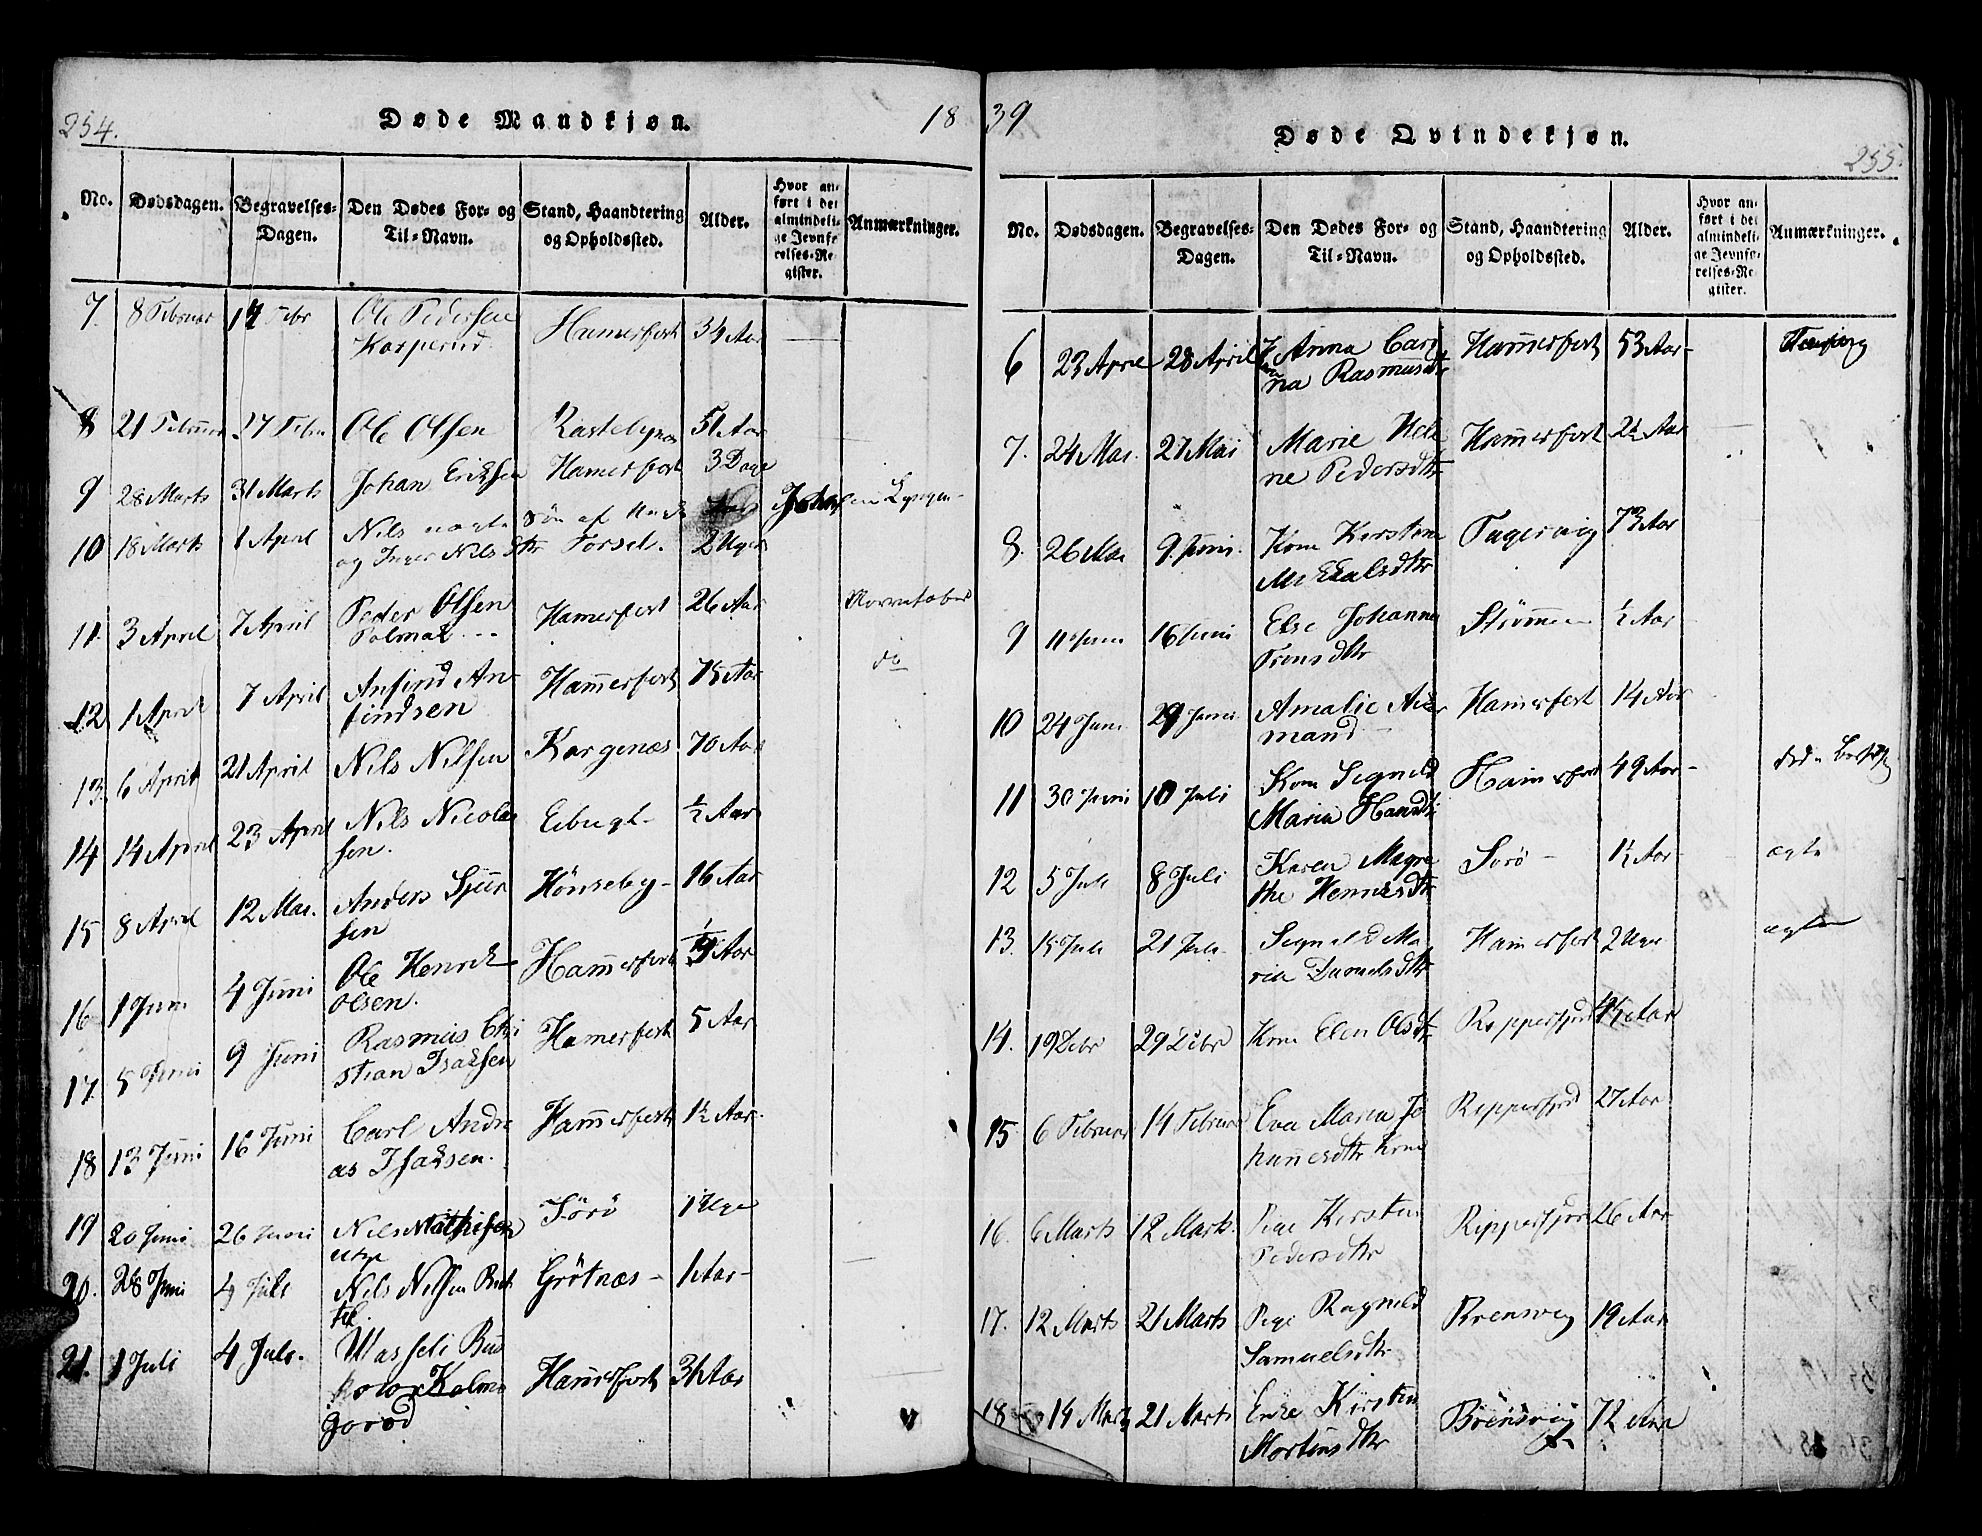 254.
Døde Mandkjøn.
18
No. Dødsdagen. Begravelses-Dagen. Den Dødes For- og Til-Navn. Stand, Haandtering og Opholdssted. Alder. Hvor anført i det almindelige Jevnførelses-Register. Anmærkninger.
7. 8 Februar 14 Febr Ole Pedersen Hamerfest 34 Aar
Kasperud
8 21 Februar 27 Febr Ole Olsen 51 Aar
9 28 Marts 31 Marts Johan Eriksen Hamerfest 3 Dage
10 18 Marts 1 April Nils uægte Søn af
og Inger Nils Dtr Torsel. 2 Uger
11. 3 April 7 April Peder Olsen Hamerfest 26 Aar
Polmak
12 1 April 7 April Anfind An- Hammerfest 75 Aar do
findsen
13. 6 April 21 April Nils Nilsen Kargenæs 70 Aar
14 14 April 23 April Nils Nicolai ½ Aar
sen.
15 8 April 12 Mai. Anders Sjur Könseby- 16 Aar
sen
16 1 Juni 4 Juni Ole Henrik Hammerfest ¼ Aar
Olsen.
17. 5 Juni 9 Juni Rasmus Chri Hamerfest 5 Aar
stian Isaksen
18 13 Juni 16 Juni Carl Andre Hammerfest 1½ Aar.
as Isaksen.
19 20 Juni 26 Juni Nils Mathisen Sørø 1 Uge
20. 28 Juni 4 Juli Nils Nilsen Grötnæs - 1 Aar-
21. 1 Juli 4 Juli. Wasseli Hammerfest 31 Aar
Kolmo
gorod
39
Døde Qvindekjøn.
255.
No. Dødsdagen. Begravelses-Dagen. Den Dødes For- og Til-Navn. Stand, Haandtering og Opholdssted. Alder. Hvor anført i det almindelige Jevnførelses-Register. Anmærkninger.
6 23 April 28 April Anna Cari Hammerfest 53 Aar-
na Rasmusdtr
7. 24 Mai. 27 Mai Marie Hele Hammerfest 2½ Aar
ne Pedersdtr
8. 26 Mai 9. Juni. Kone Kirsten Fugervig 73 Aar
Mikkelsdtr
9 11 Juni 16 Juni Else Johanna Strömmen ½ Aar
Fronsdtr
10 24 Juni 29 Juni Amalie Aker Hamerfest 14 Aar
mand
11 30 Juni 10 Juli Kone Segneld Hamerfest 49 Aar-
Maria Hansdtr
12 5 Juli 8 Juli Karen Magre Sørö - 1½ Aar- ægte
the Hennesdtr
13. 15 Juli 21 Juli. Segneld Ma Hamerfest 2 Uger ægte
ria Danielsdtr
14. 19 Debr 29 Debr Kone Elen Olsdtr Repperfjord 45 Aar
15 6 Februar 14 Februar Eva Maria Jo Repperfjord 27 Aar
hannesdtr Kone
16. 6 Marts 12 Marts. Pige Kirsten Ripperfjord 26 Aar
Pedersdtr
17. 12 Marts 21 Marts Pige Ragneld Brensvig 19 Aar
Samuelsdtr
18 14 Marts 21 Marts Enke Kirsten Brensvig 72 Aar
Mortensdtr